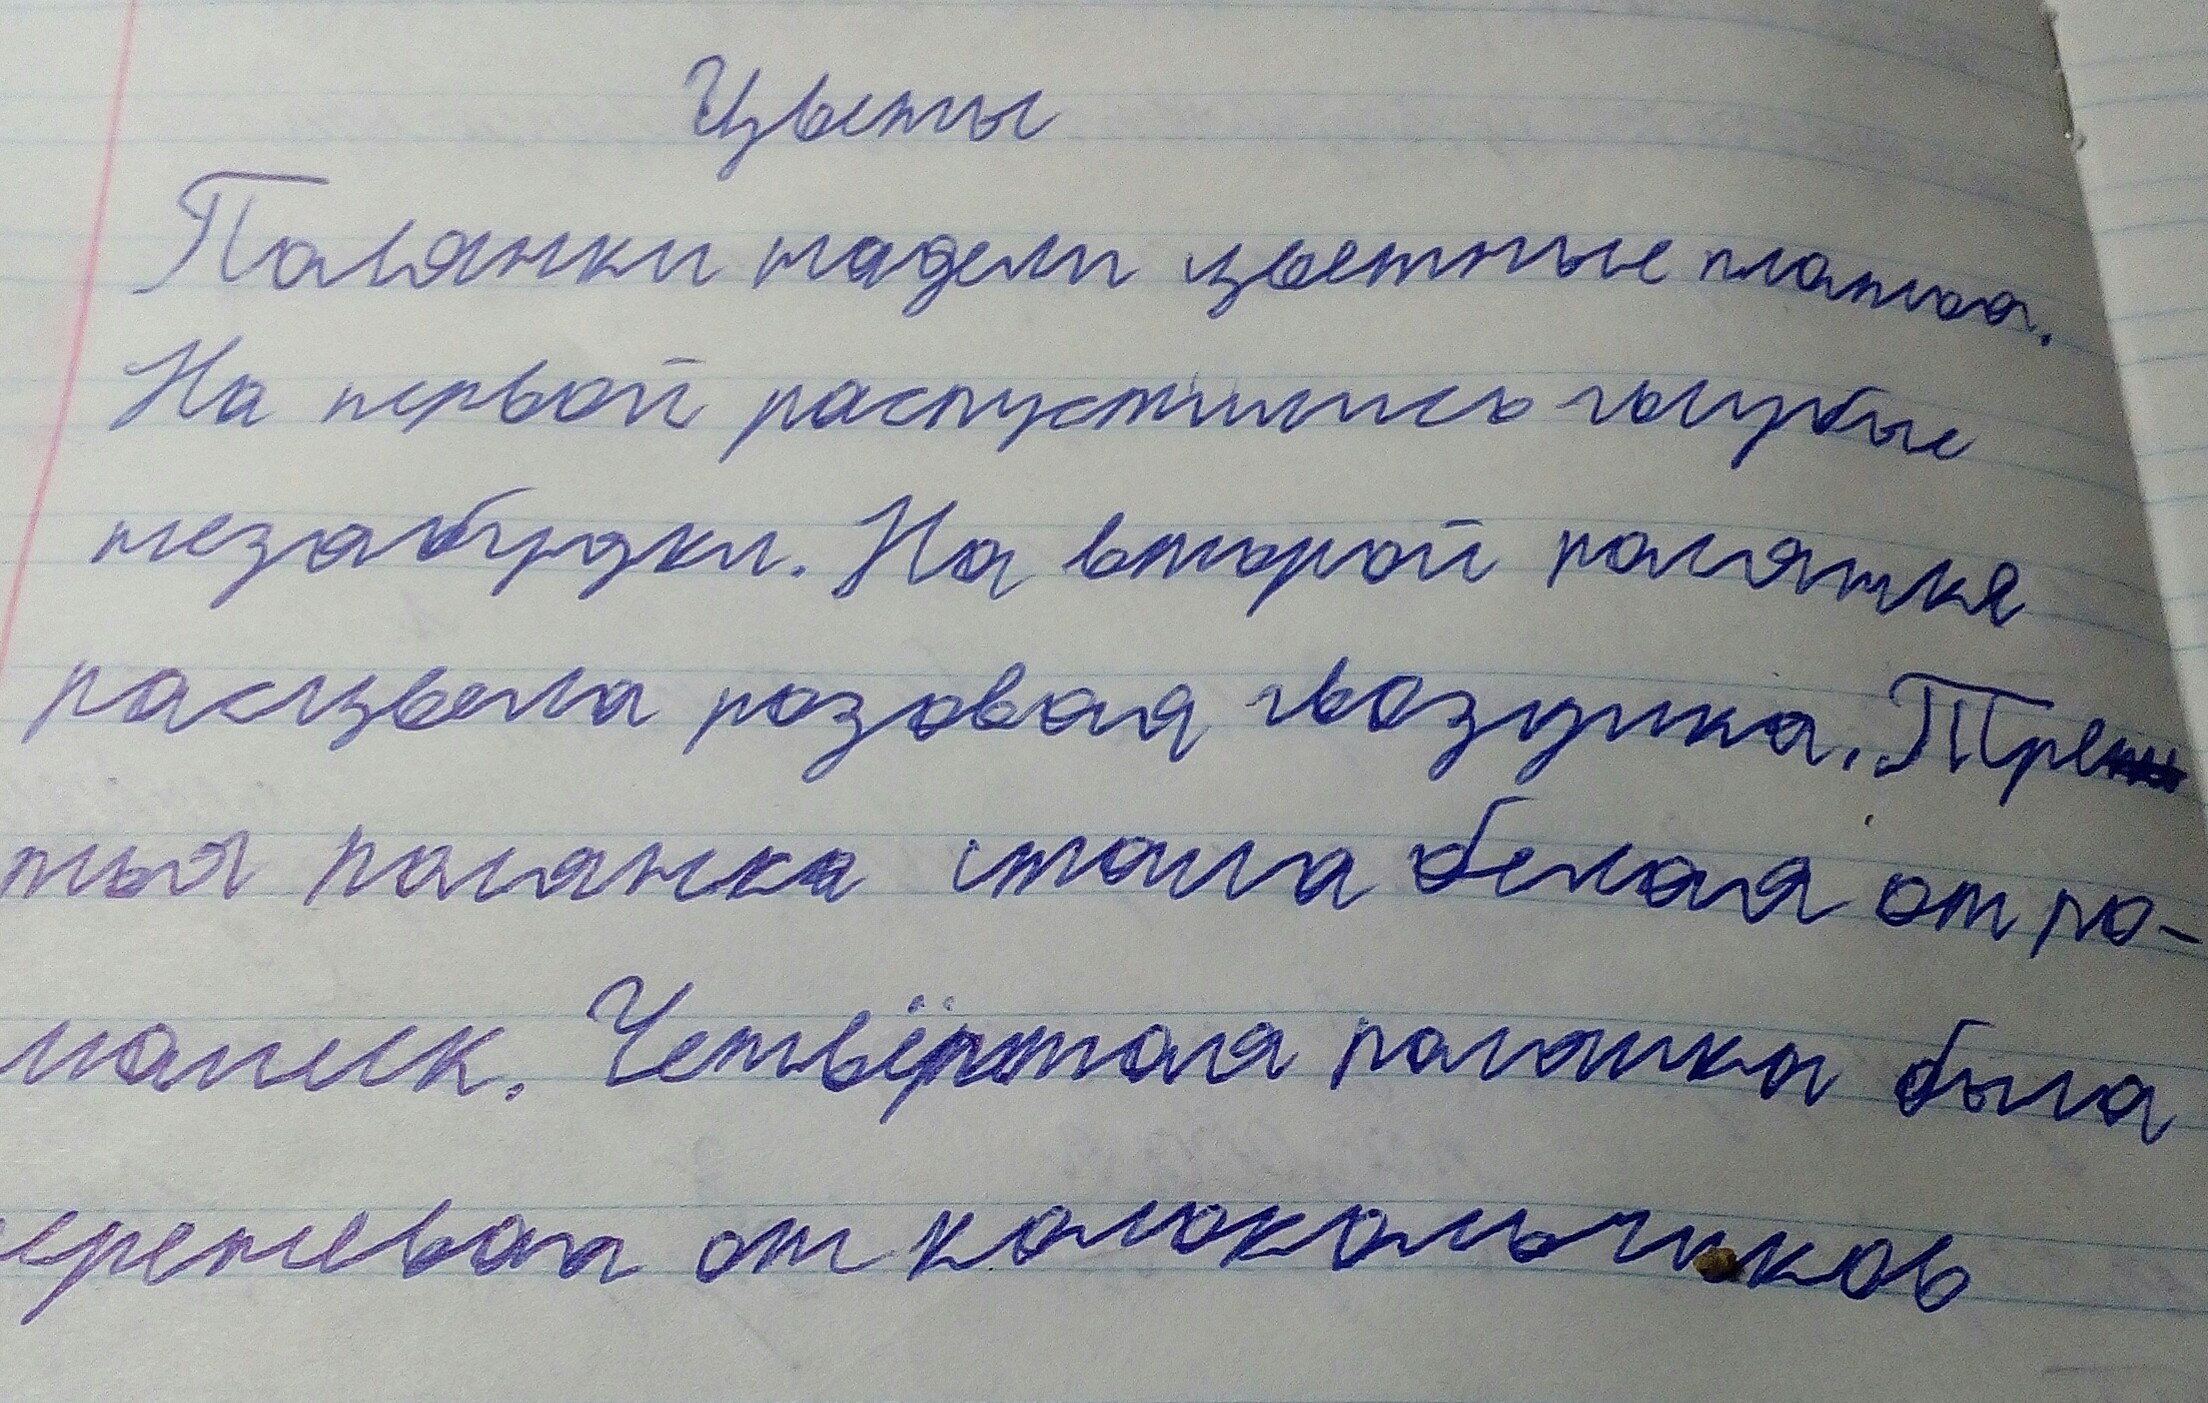 Цветы
Полянки надели цветные платья.
На первой распустились голубые
незабудки. На второй полянке
расцвела розовая гвоздика. Тре
тья полянка стала белая от ро-
машек. Четвёртая полянка была
сиреневая от колокольчиков